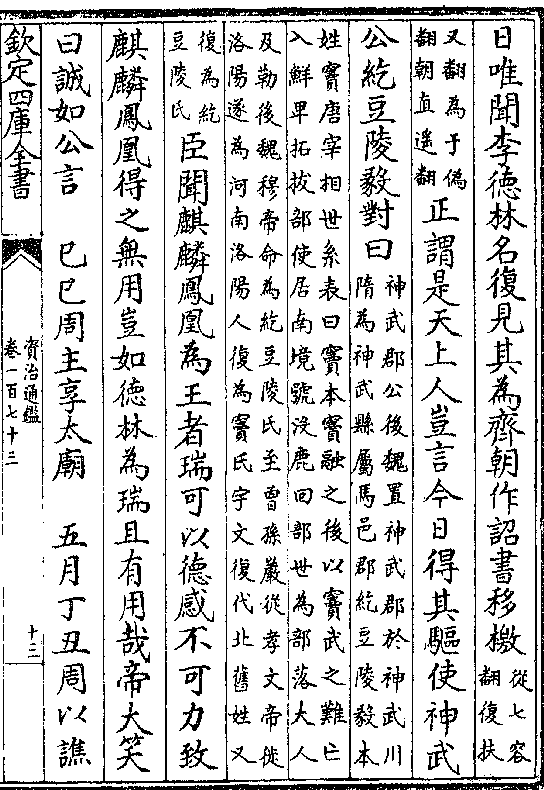 日唯聞李德林名復見其為齊朝作詔書移檄從七容
翻復扶
又翻為于偽
翻朝直遙翻正謂是天上人豈言今日得其驅使神武
公紇豆陵毅對曰神武郡公後魏置神武郡於神武川
隋為神武縣屬馬邑郡紇豆陵毅本
姓竇唐宰相世系表曰竇本竇融之後以竇武之難亡
入鮮卑拓拔部使居南境號沒鹿回部世為部落大人
及勒後魏穆帝命為紇豆陵氏至曾孫嚴從孝文帝徙
洛陽遂為河南洛陽人復為竇氏宇文復代北舊姓又
復為紇
豆陵氏臣聞麒麟鳳凰為王者瑞可以德感不可力致
麒麟鳳凰得之無用豈如德林為瑞且有用哉帝大笑
曰誠如公言　巳巳周主享太廟　五月丁丑周以譙
欽定四庫全書
資治通鑑
卷一百七十三
十二